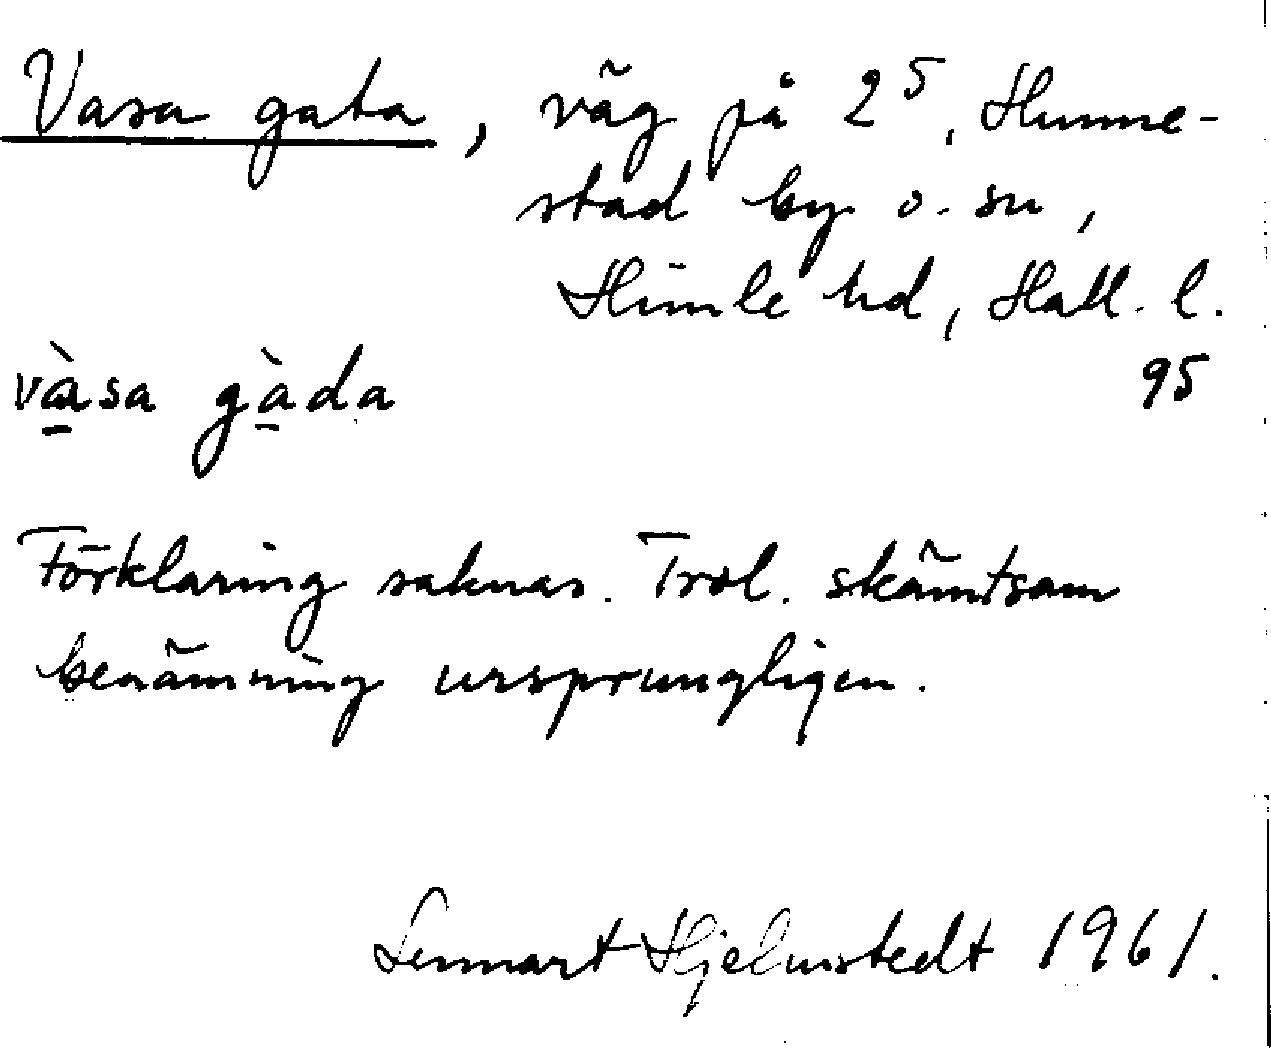 Vasa gata, väg på 2⁵, Hunne-
stad by o. sn,
Himle hd, Hall. l.
vàsa gàda 95
Förklaring saknas. Trol. skämtsam
benämning ursprungligen.
Lennart Hjelmstedt 1961.